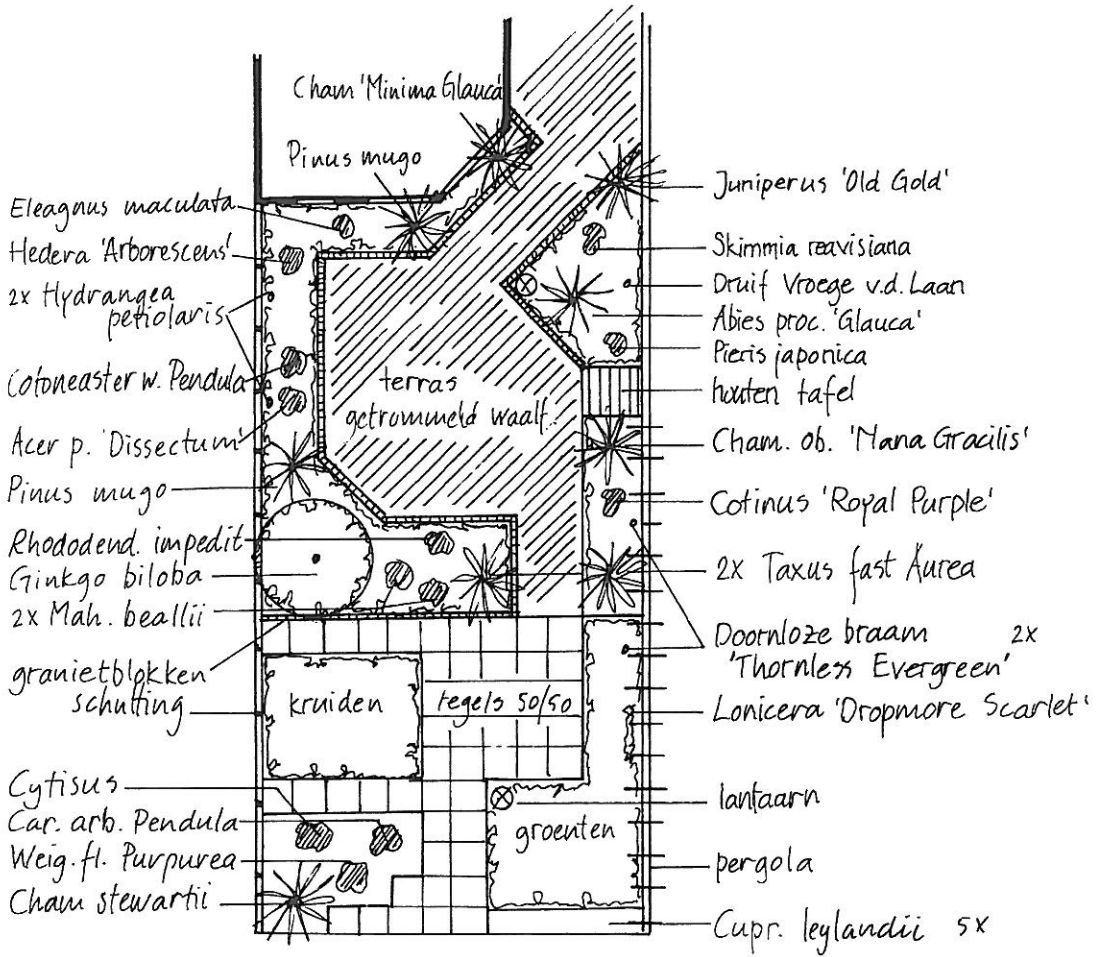 Cham 'Minima Glauca'
Pinus mugo
Eleagnus maculata
Hedera 'Arborescens'
2x Hydrangea
petiolaris
Cotoneaster w. Pendula
Acer p. 'Dissectum'
Pinus mugo
Rhododend. impedit
Ginkgo biloba
2x Mah. beallii
granietblokken
schutting
Cytisus
Car. arb. Pendula
Weig. fl. Purpurea
Cham stewartii
terras
getrommeld waalf.
kruiden
tegels 50/50
groenten
Juniperus 'Old Gold'
Skimmia reavisiana
Druif Vroege v.d. Laan
Abies proc. 'Glauca'
Pieris japonica
houten tafel
Cham. ob. 'Nana Gracilis'
Cotinus 'Royal Purple'
2x Taxus fast Aurea
Doornloze braam 2x
'Thornless Evergreen'
Lonicera 'Dropmore Scarlet'
lantaarn
pergola
Cupr. leylandii 5x